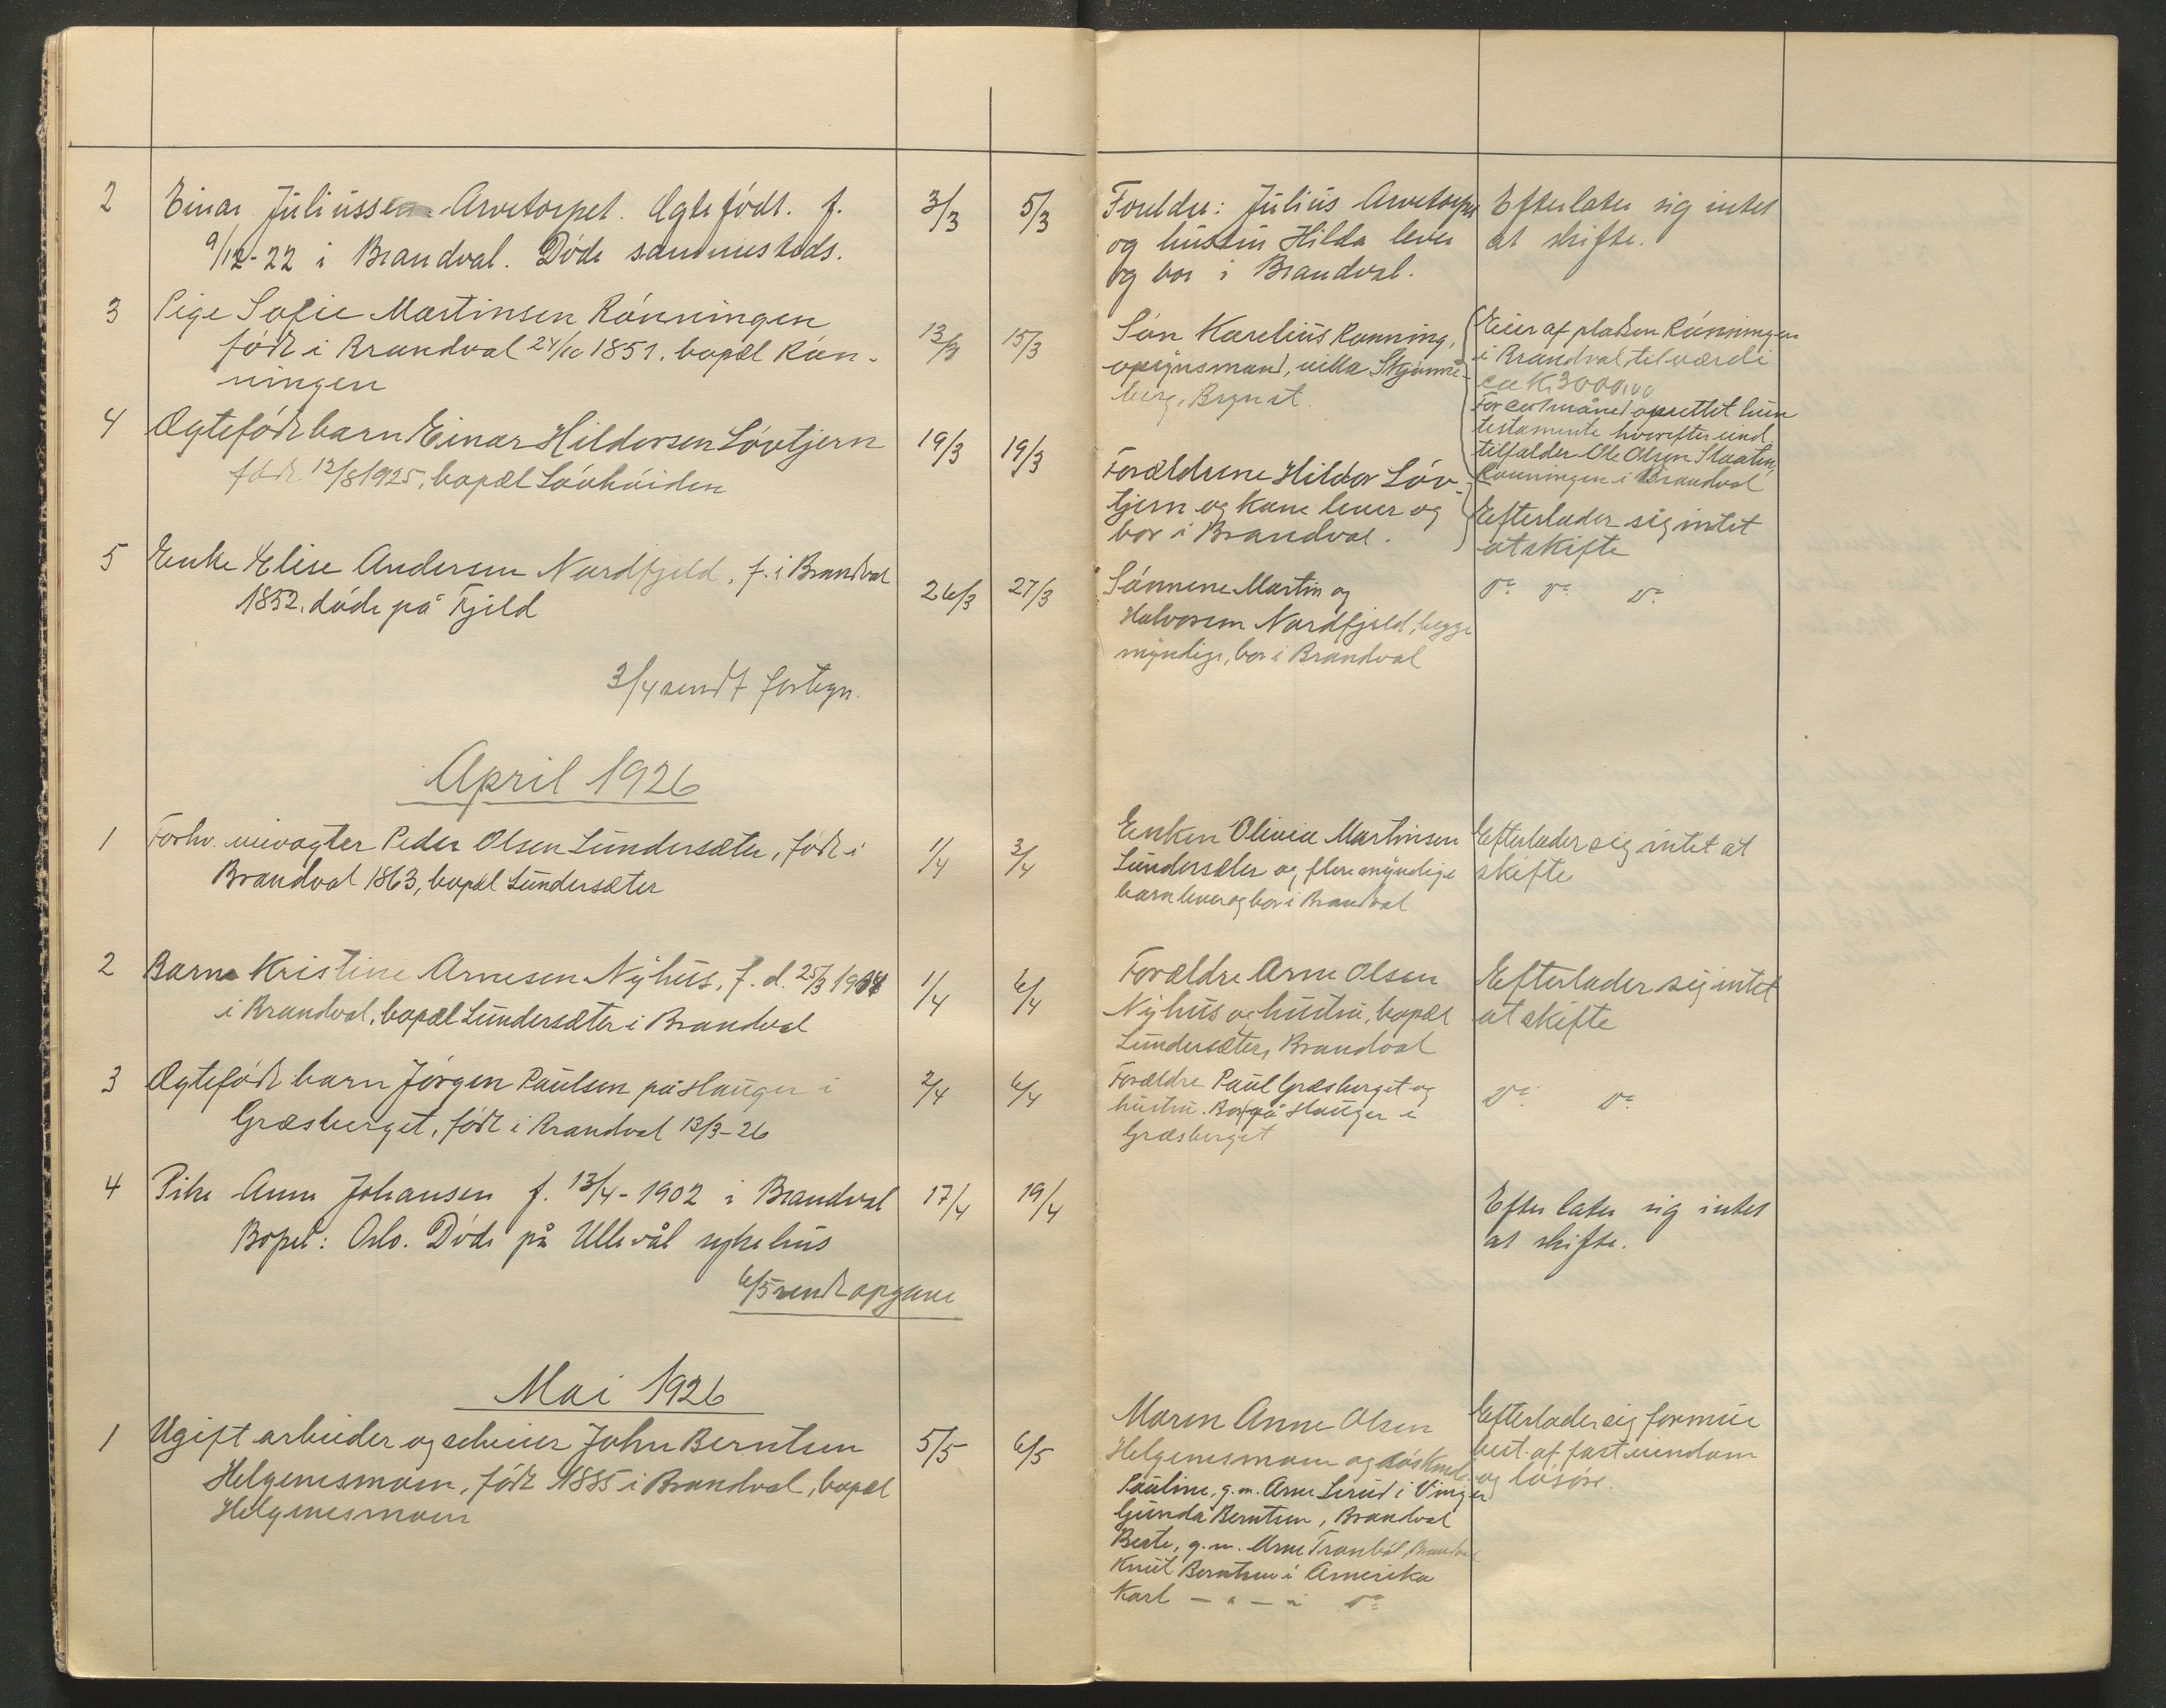 2 Einar Júliússen Arvetorpet. Ægtefödt. f. 3/3 5/3
9/12-22 i Brandval. Döde sammesteds.
Foreldre: Júlíus Arvetorpet
og hústrú Hilda lever
og bor i Brandval.
Efterlater sig intet
at skifte.
3 Pige Sofie Martinsen Rönningen
födt i Brandval 24/10 1851. bopæl Rön- 13/3 15/3
ningen
Sön Karelius Rönning,
opsynsmand, villa
berg, Brynst.
Eier af pladsen Rönningen
i Brandval, til værdi
ca Kr 3000,00
For ca 1 måned oprettet hun
testamente hvorefter eiend.
tilfalder Ole Olsen
Rönningen i Brandval
4 Ægtefödt barn Einar Hildorsen Lövtjern 19/3 19/3
födt 12/8 1925, bopæl Lövhöiden
Forældrene Hildor Löv-
tjern og kone lever og
bor i Brandval.
Efterlader sig intet
at skifte
5 Enke Elise Andersen Nordfjeld, f. i Brandval
1852. döde på Fjeld 26/3 27/3
Sönnene Martin og
Halvorsen Nordfjeld, begge
myndige, bor i Brandval
Do Do Do
3/4 sendt fortegn.
April 1926
1 Forhv. veivogter Peder Olsen Lúndersæter, födt i 1/4 3/4
Brandval 1863, bopæl Lúndersæter
Enken Olivia Martinsen
Lúndersæter og flere myndige
barn lever og bor i Brandval
Efterlader sig intet at
skifte
2 Barn Kristine Arnesen Nýhús, f. d. 25/3 1908 1/4 6/4
i Brandval, bopæl Lúndersæter i Brandval
Forældre Arne Olsen
Nýhús og hústrú, bopæl
Lúndersæter, Brandval
Efterlader sig intet
at skifte
3 Ægtefödt barn Jörgen Paúlsen på Haúger i 2/4 6/4
Græsberget, födt i Brandval 13/3-26
Forældre Paúl Græsberget og
hústrú. Bor på Haúger i
Græsberget
Do Do
4 Pike Anna Johansen f. 13/4-1902 i Brandval 17/4 19/4
Bopel: Oslo. Döde på Ullevål sykehús
Efterlater sig intet
at skifte.
6/5 sendt opgave
Mai 1926
1 Ugift arbeider og selveier John Berntsen 5/5 6/5
Helgenesmoen, födt 1885 i Brandval, bopæl
Helgenesmoen
Moren Anne Olsen
Helgenesmoen og söskend.
Paúline, g.m. Arne Lerúd i Vinger
Gúnda Berntsen, Brandval
Berte, g.m. Arne Tranböl, Brandval
Knút Berntsen i Amerika
Karl — " — i Do
Efterlader sig formúe
best. af fast eiendom
og lösöre.